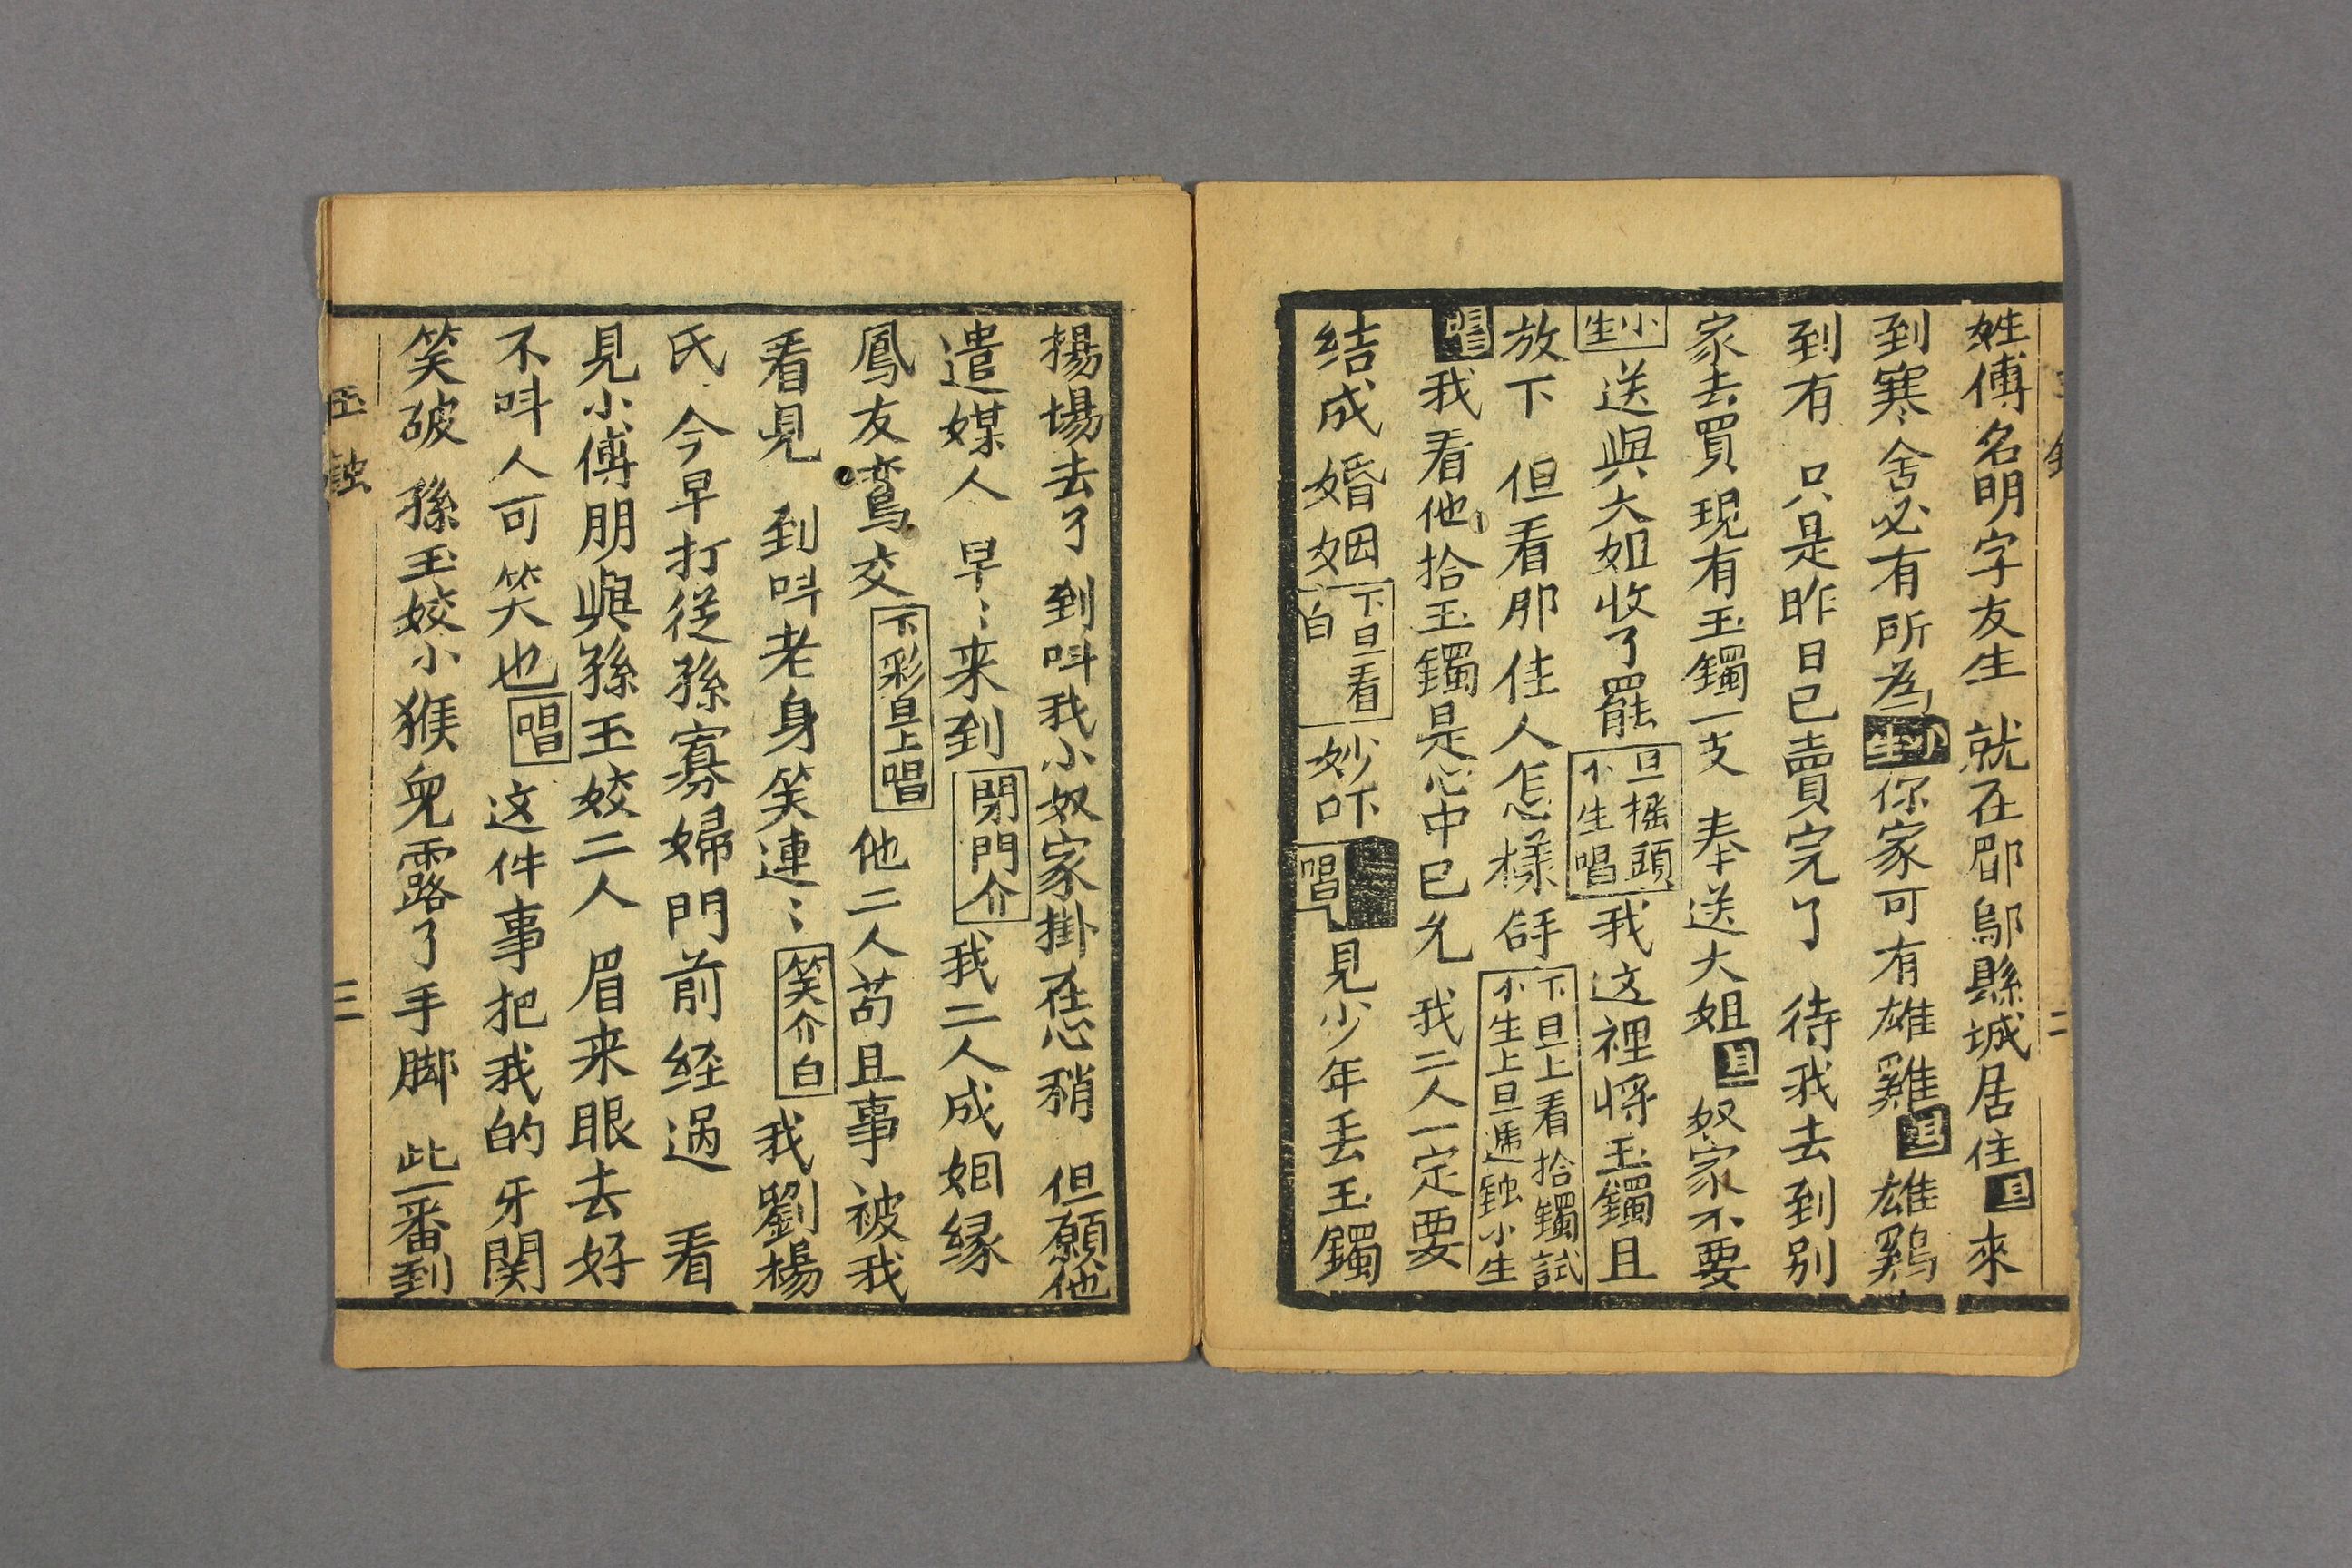 姓傅名明字友生 就在郡鄔縣城居住旦來
到寒舍必有所為小生你家可有雄雞旦雄鷄
到有 只是昨日已賣完了 待我去到別
家去買現有玉鐲一支 奉送大姐旦奴家不要
小生送與大姐收了罷旦搖頭小生唱我这裡將玉鐲且
放下 但看那佳人怎樣 下旦上看拾鐲試小生上旦遞鈾小生
唱我看他拾玉鐲是心中已允 我二人一定要
结成婚姻下旦看白妙吓唱見少年丢玉鐲
玉
二
揚場去了 到呌我小奴家掛在心稍 但願他
遣媒人 早〻来到閉門介我二人成姻緣
鳳友鸞交下彩旦上唱他二人苟且事被我
看見 到呌老身笑連〻笑介白我劉楊
氏 今早打従孫寡婦門前経過 看
見小傅朋與孫玉姣二人 眉来眼去好
不呌人可笑也唱这件事把我的牙関
笑破 孫玉姣小猴兒露了手脚 此一番到
玉
三